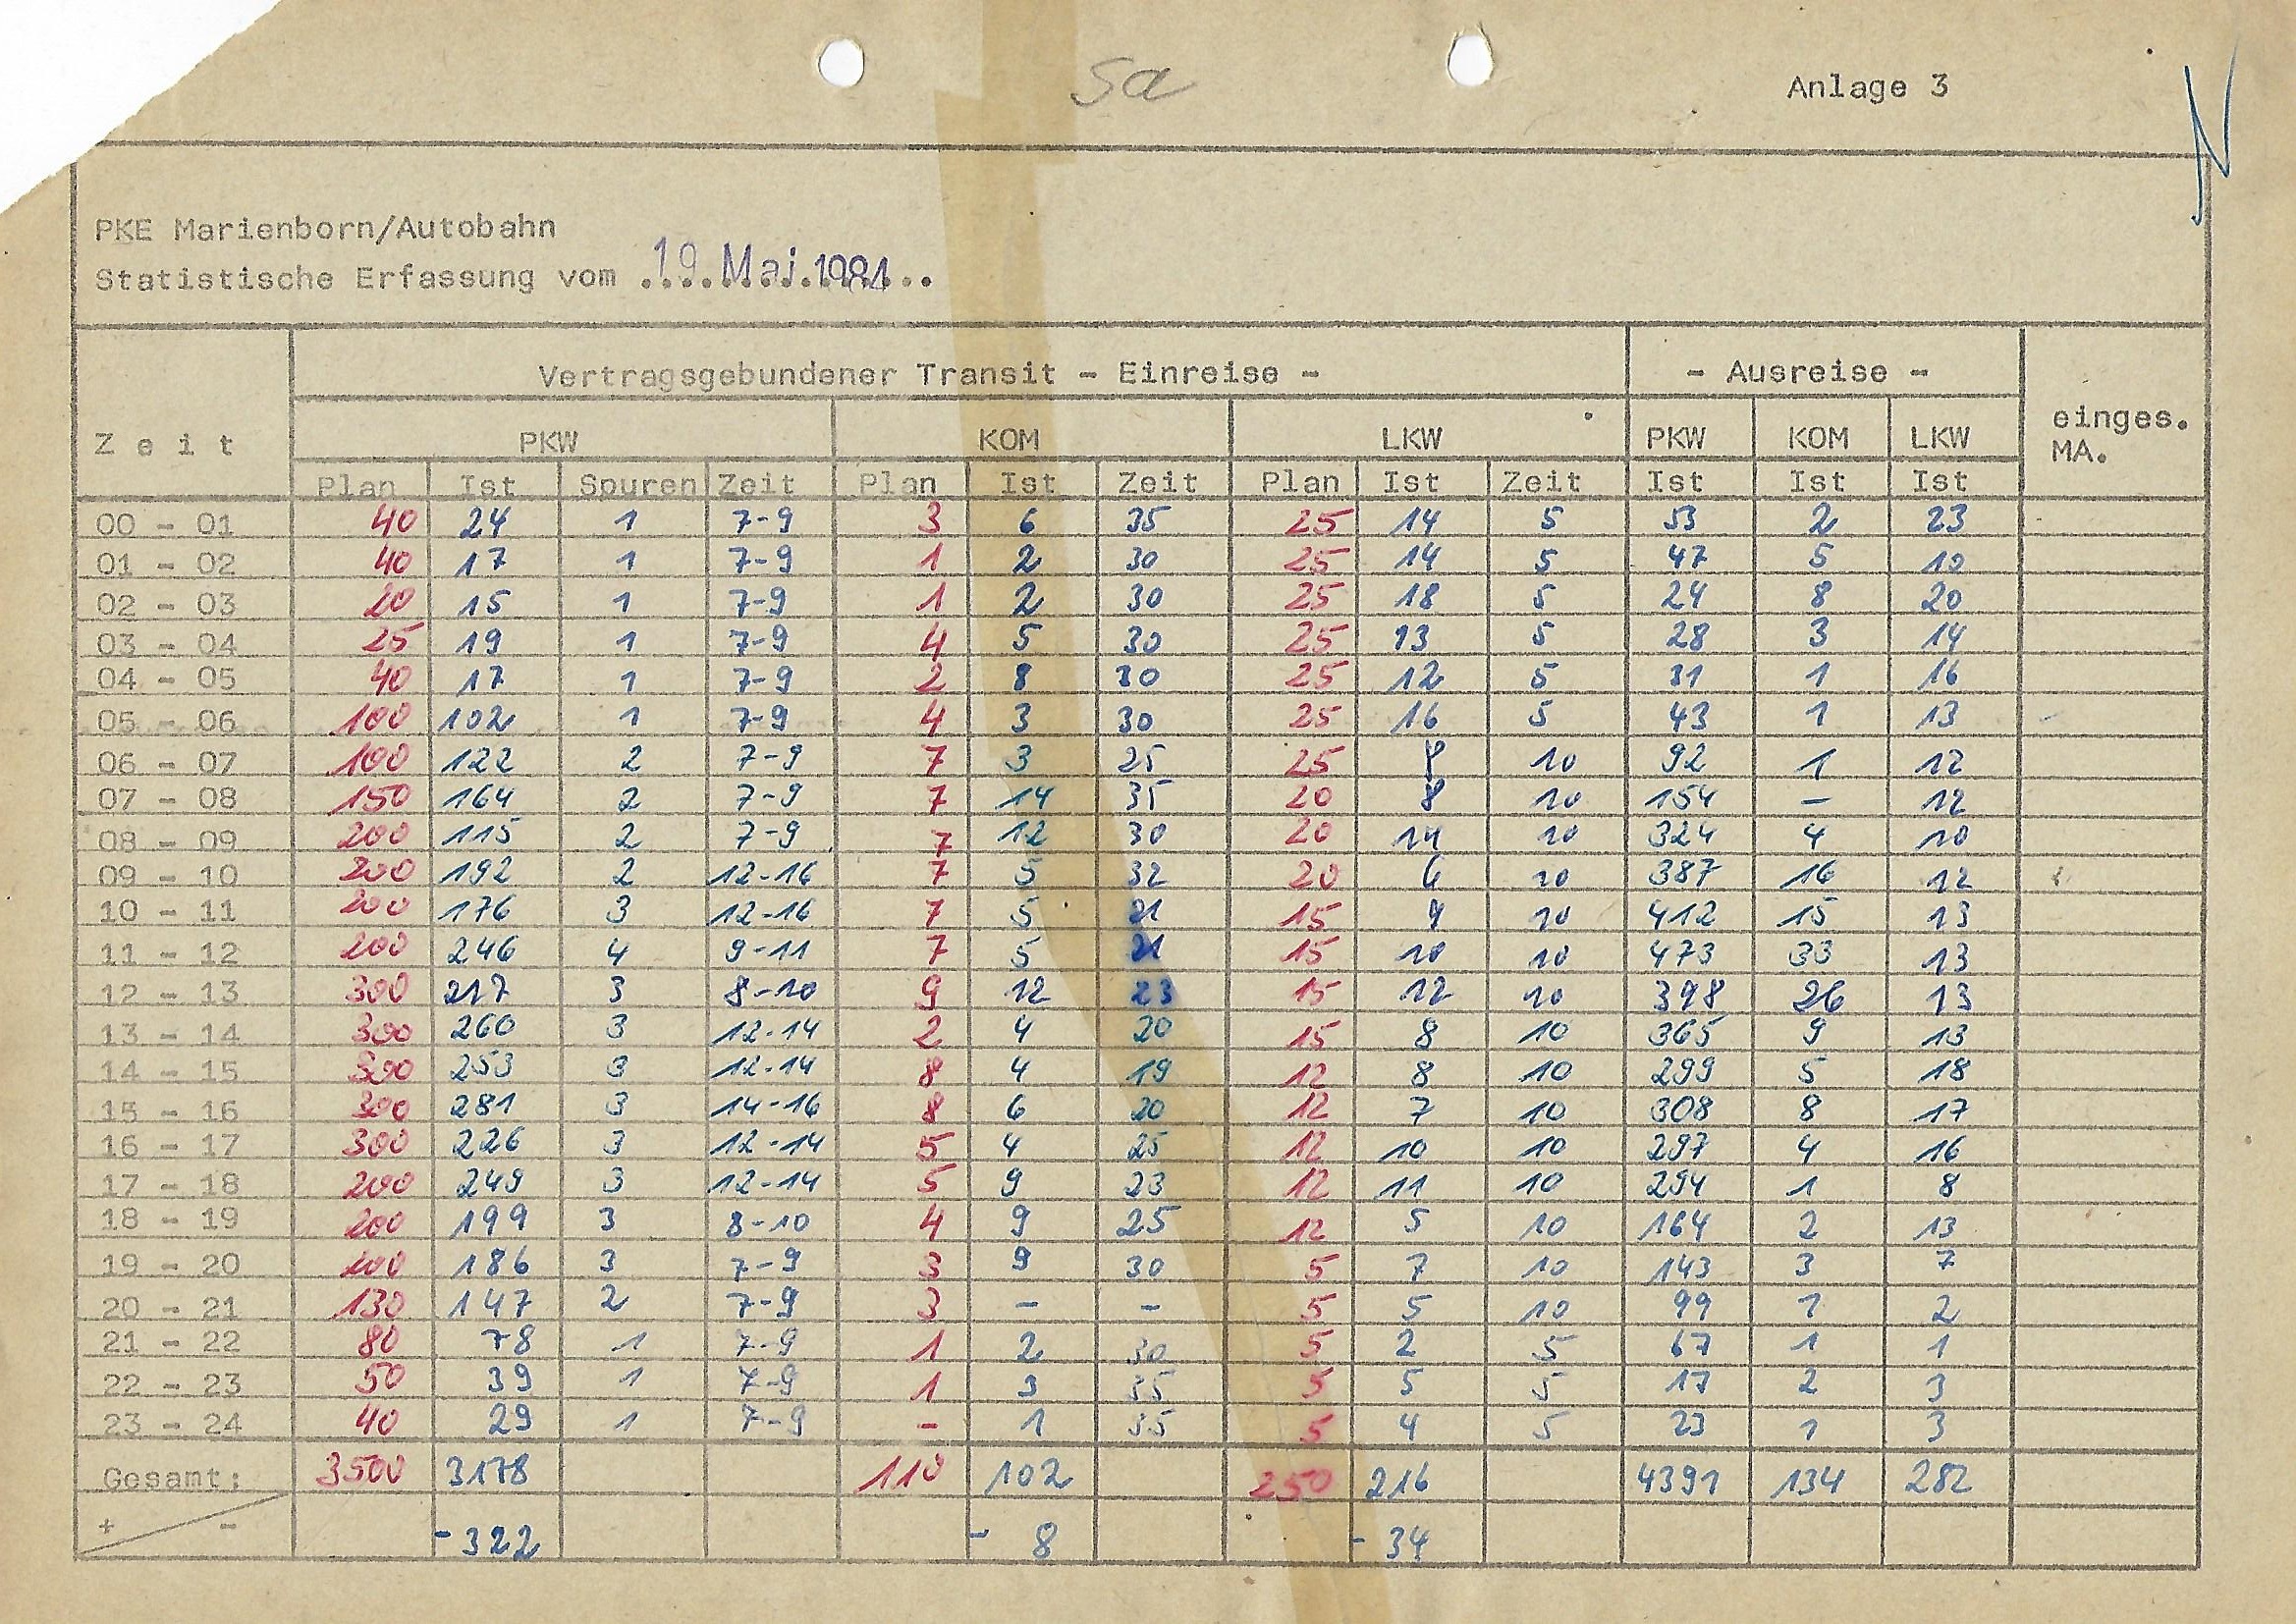 Sa
Anlage 3
N
PKE Marienborn/Autobahn
Statistische Erfassung vom 19. Mai 1984
Vertragsgebundener Transit - Einreise - - Ausreise -
Z e i t PKW KOM LKW PKW KOM LKW einges. MA.
Plan Ist Spuren Zeit Plan Ist Zeit Plan Ist Zeit Ist Ist Ist
00 - 01 40 24 1 7-9 3 6 35 25 14 5 53 2 23
01 - 02 40 17 1 7-9 1 2 30 25 14 5 47 5 10
02 - 03 20 15 1 7-9 1 2 30 25 18 5 24 8 20
03 - 04 25 19 1 7-9 4 5 30 25 13 5 28 3 14
04 - 05 40 17 1 7-9 2 8 30 25 12 5 31 1 16
05 - 06 100 102 1 7-9 4 3 30 25 16 5 43 1 13
06 - 07 100 122 2 7-9 7 3 25 25 8 10 92 1 12
07 - 08 150 164 2 7-9 7 14 35 20 8 10 154 - 12
08 - 09 200 115 2 7-9 7 12 30 20 14 10 324 4 10
09 - 10 200 192 2 12-16 7 5 32 20 6 10 387 16 12
10 - 11 200 176 3 12-16 7 5 21 15 9 10 412 15 13
11 - 12 200 246 4 9-11 7 5 21 15 10 10 473 33 13
12 - 13 300 217 3 8-10 9 12 23 15 12 10 398 26 13
13 - 14 300 260 3 12-14 2 4 20 15 8 10 365 9 13
14 - 15 300 253 3 12-14 8 4 19 12 8 10 299 5 18
15 - 16 300 281 3 14-16 8 6 20 12 7 10 308 8 17
16 - 17 300 226 3 12-14 5 4 25 12 10 10 297 4 16
17 - 18 200 249 3 12-14 5 9 23 12 11 10 294 1 8
18 - 19 200 199 3 8-10 4 9 25 12 5 10 164 2 13
19 - 20 186 3 7-9 3 9 30 5 7 10 143 3 7
20 - 21 130 147 2 7-9 3 - - 5 5 10 99 1 2
21 - 22 80 78 1 7-9 1 2 30 5 2 5 67 1 1
22 - 23 50 39 1 7-9 1 3 35 5 5 5 17 2 3
23 - 24 40 29 1 7-9 - 1 35 5 4 5 23 1 3
Gesamt: 3500 3178 110 102 250 216 4391 134 282
+ - -322 - 8 - 34